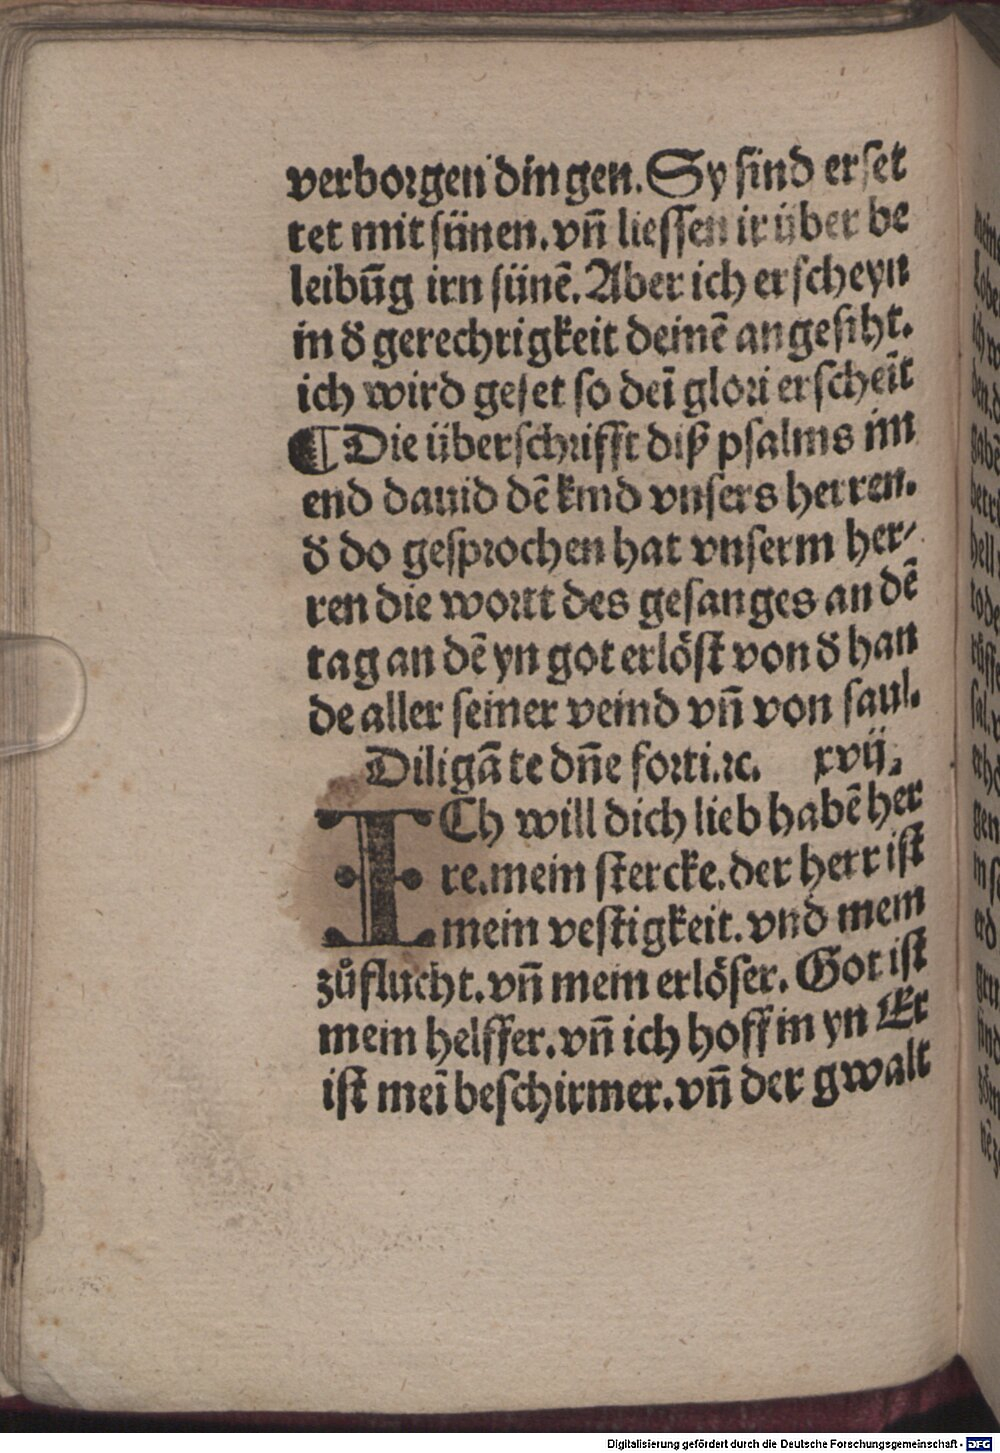 verborgen dingen. Sy sind erset
tet mit sünen. vñ liessen ir über be
leibūg irn sünē. Aber ich erscheyn
in d̕ gerechtigkeit deinē angesiht.
ich wird geset so deī glori erscheīt
¶ Die überschrifft diß psalms im
end dauid dē kind vnsers herren.
d̕ do gesprochen hat vnserm her⸗
ren die wortt des gesanges an dē
tag an dē yn got erlöst von d̕ han
de aller seiner veind vñ von saul.
Diligā te dñe forti. ⁊c. xvij.
ICh will dich lieb habē her
re. mein stercke. der herr ist
mein vestigkeit. vnd mein
zůflucht. vñ mein erlöser. Got ist
mein helffer. vñ ich hoff in yn Er
ist meī beschirmer. vñ der gwalt
Digitalisierung gefördert durch die Deutsche Forschungsgemeinschaft - DFG